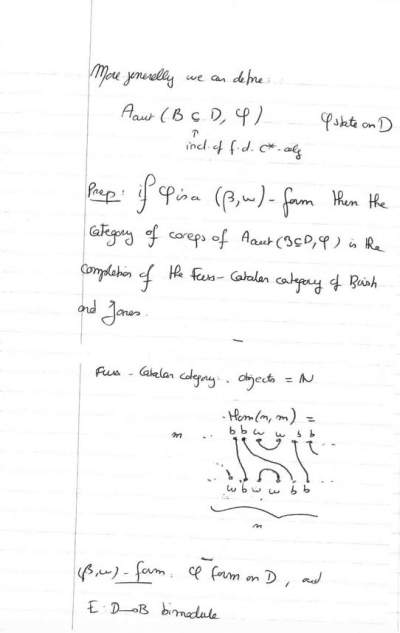 More generally we can define:
Aaut (B ⊆ D, φ) φ state on D
↑
incl. of f.d. C*-alg
Prop: if φ is a (β,w)-form then the
category of coreps of Aaut(B⊆D,φ) is the
completion of the Fuss-Catalan category of Bisch
and Jones.
Fuss-Catalan category. objects = ℕ
Hom(n,m) =
b b w w b b
m
w b w w b b
n
(β,w)-form: φ form on D, and
E: D→B bimodule